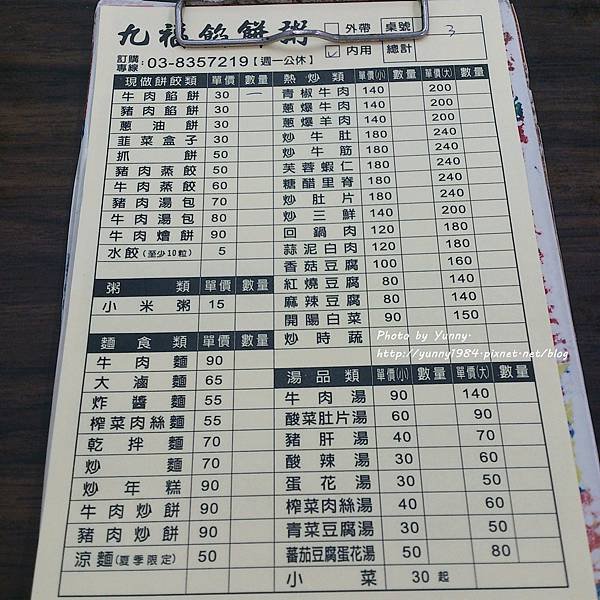 九福餡餅粥
外帶 桌號 3
✓ 內用 總計
訂購專線 03-8357219【週一公休】
現做餅餃類 單價 數量
牛肉餡餅 30 一
豬肉餡餅 30
蔥油餅 30
韮菜盒子 30
抓餅 50
豬肉蒸餃 50
牛肉蒸餃 60
豬肉湯包 70
牛肉湯包 80
牛肉燴餅 90
水餃(至少10粒) 5
粥類 單價 數量
小米粥 15
麵食類 單價 數量
牛肉麵 90
大滷麵 65
炸醬麵 55
榨菜肉絲麵 55
乾拌麵 70
炒麵 70
炒年糕 90
牛肉炒餅 90
豬肉炒餅 90
涼麵(夏季限定) 50
熱炒類 單價(小) 數量 單價(大) 數量
青椒牛肉 140 200
蔥爆牛肉 140 200
蔥爆羊肉 140 200
炒牛肚 180 240
炒牛筋 180 240
芙蓉蝦仁 180 240
糖醋里脊 180 240
炒肚片 180 240
炒三鮮 140 200
回鍋肉 120 180
蒜泥白肉 120 180
香菇豆腐 100 160
紅燒豆腐 80 140
麻辣豆腐 80 140
開陽白菜 90 150
炒時蔬
Photo by Yunny.
http://yunny1984.pixnet.net/blog
湯品類 單價(小) 數量 單價(大) 數量
牛肉湯 90 140
酸菜肚片湯 60 90
豬肝湯 40 70
酸辣湯 30 60
蛋花湯 30 50
榨菜肉絲湯 40 60
青菜豆腐湯 30 50
蕃茄豆腐蛋花湯 50 80
小菜 30起